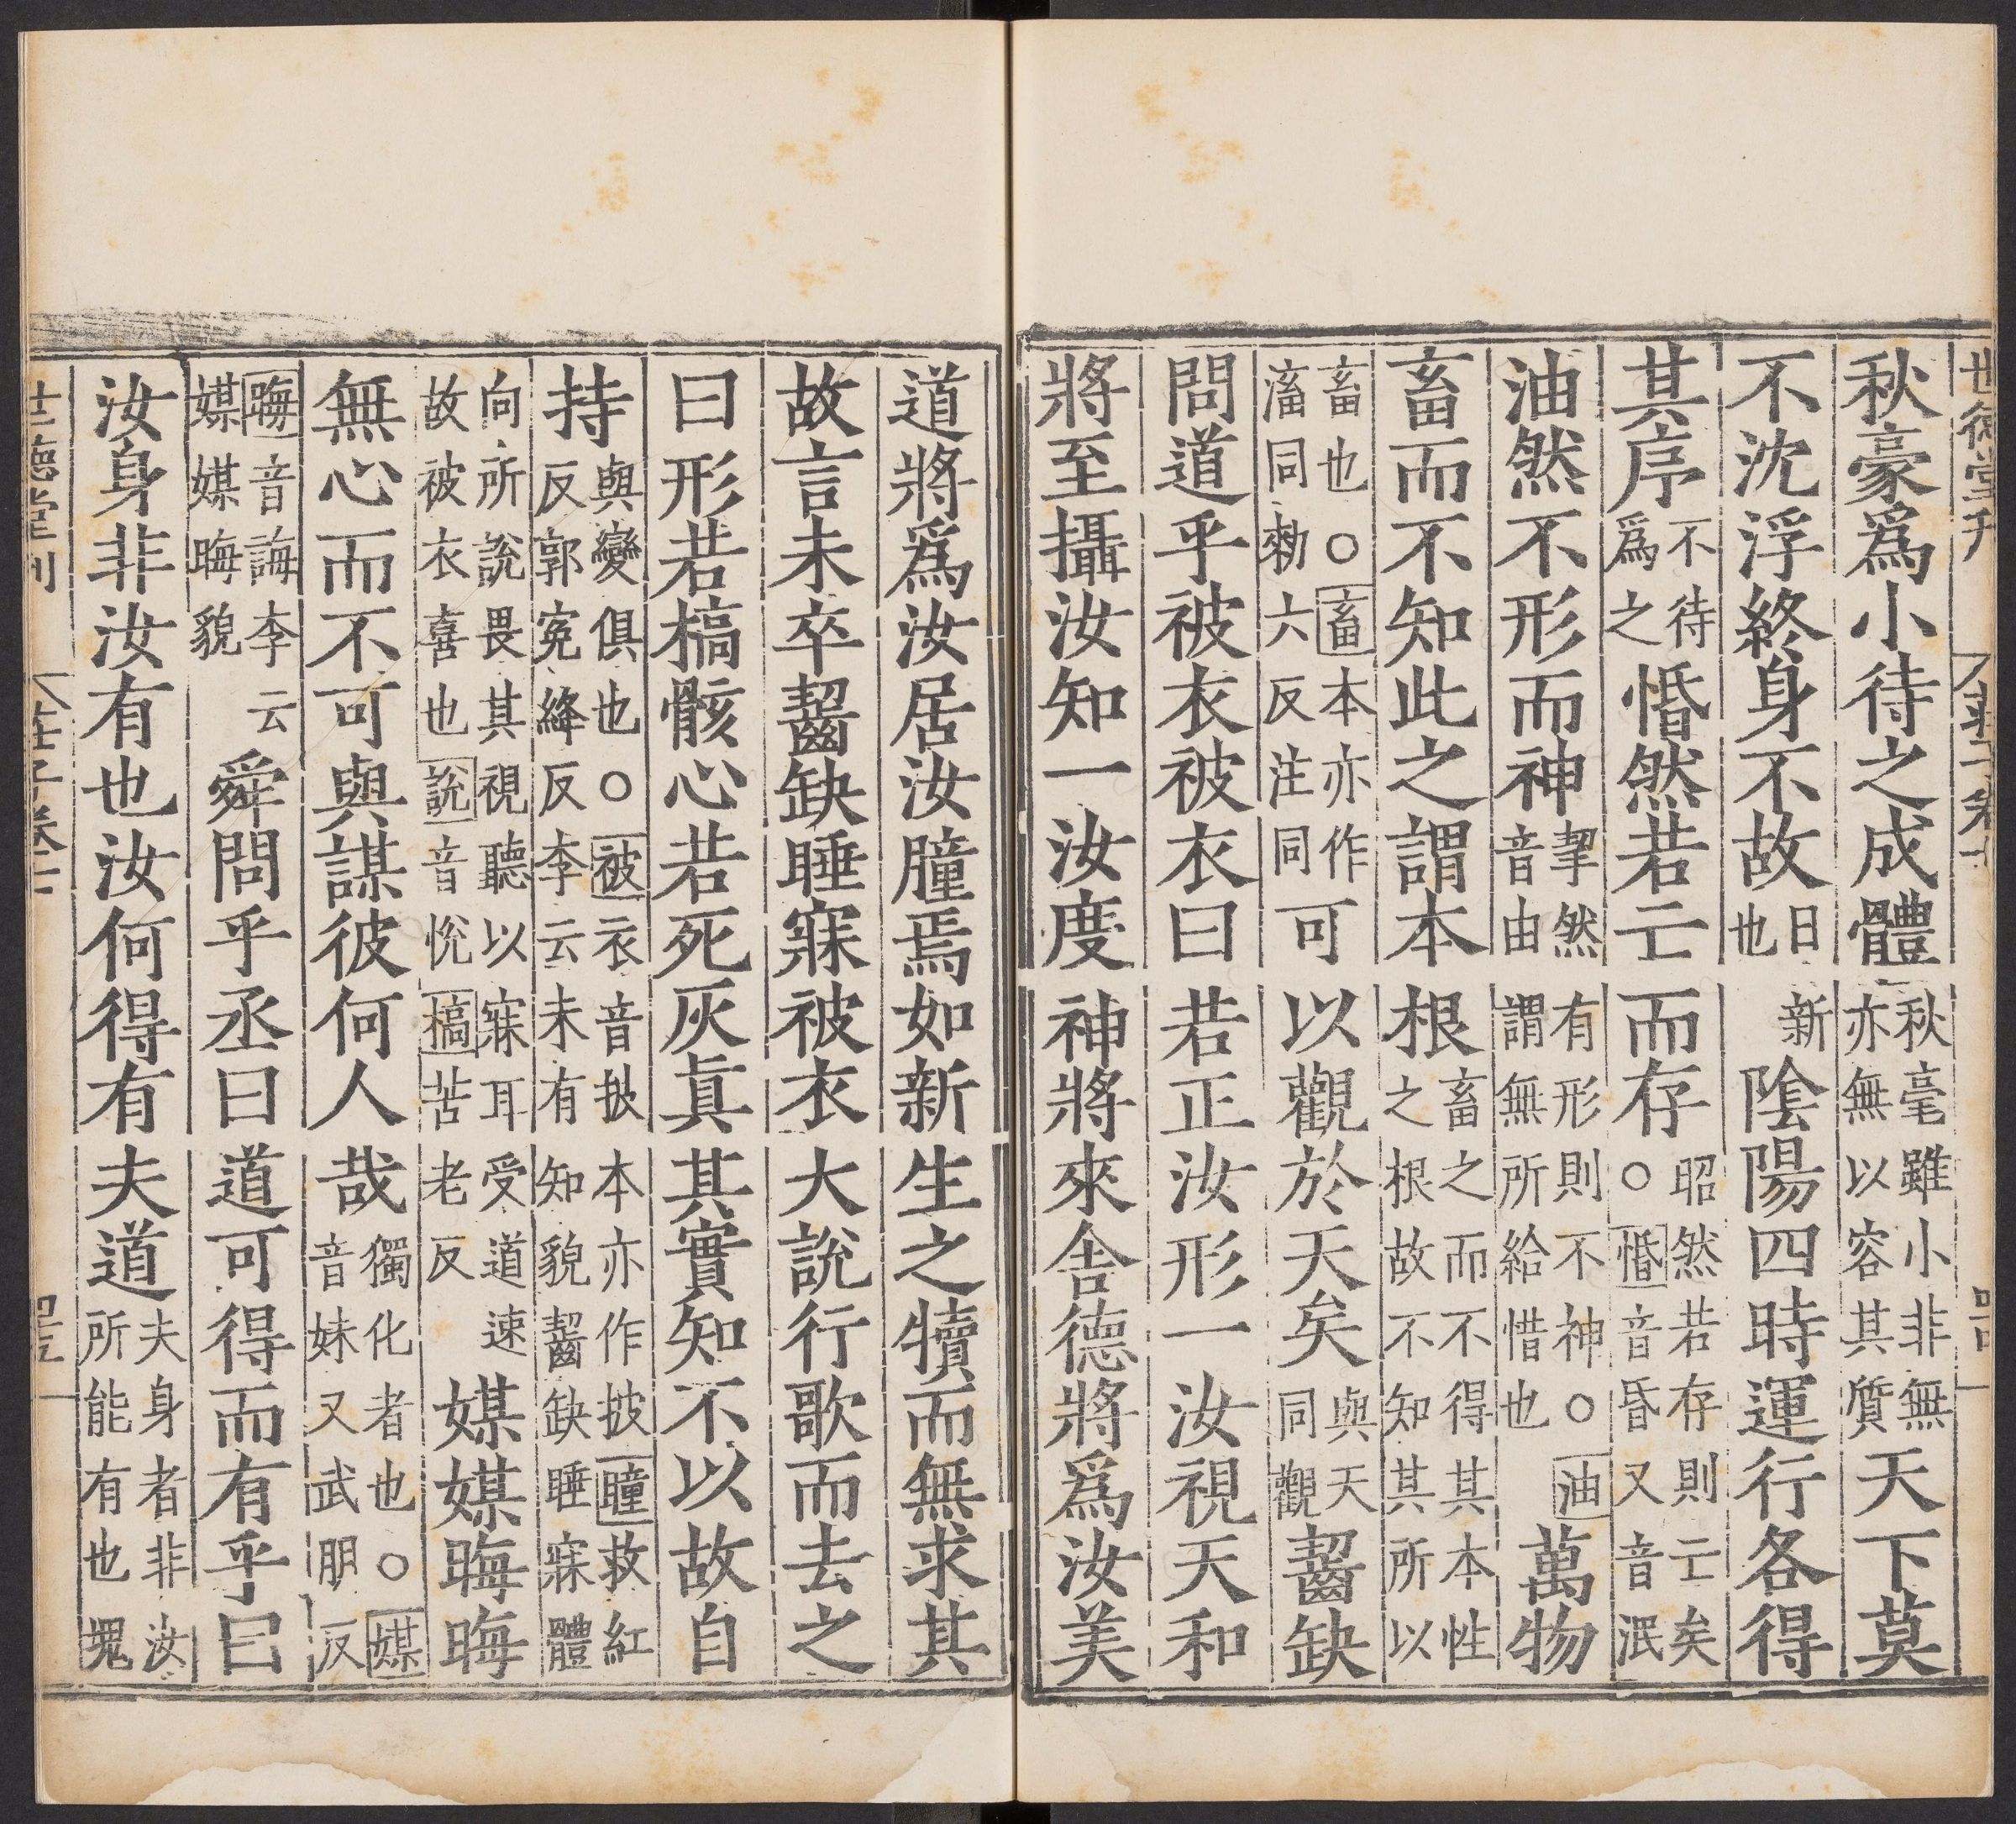 世德堂刊 莊子卷七
秋豪爲小待之成體秋毫雖小非無亦無以容其質天下莫
不沈浮終身不故日新也陰陽四時運行各得
其序不待爲之惛然若亡而存昭然若存則亡矣○惛音昏又音泯
油然不形而神挈然有形則不神○油音由謂無所給惜也萬物
畜而不知此之謂本根畜之而不得其本性之根故不知其所以
畜也○畜本亦作滀同勑六反注同可以觀於天矣與天同觀齧缺
問道乎被衣被衣曰若正汝形一汝視天和
將至攝汝知一汝度神將來舍德將爲汝美
道將爲汝居汝瞳焉如新生之犢而無求其
故言未卒齧缺睡寐被衣大說行歌而去之
曰形若槁骸心若死灰眞其實知不以故自
持與變俱也○被衣音披本亦作披瞳救紅反郭寃絳反李云未有知貌齧缺睡寐體
向所說畏其視聽以寐耳受道速故被衣喜也說音悅槁苦老反媒媒晦晦
無心而不可與謀彼何人哉獨化者也○媒音妹又武朋反
晦音誨李云媒媒晦貌舜問乎丞曰道可得而有乎曰
汝身非汝有也汝何得有夫道夫身者非汝所能有也塊
世德堂刊 莊子卷七